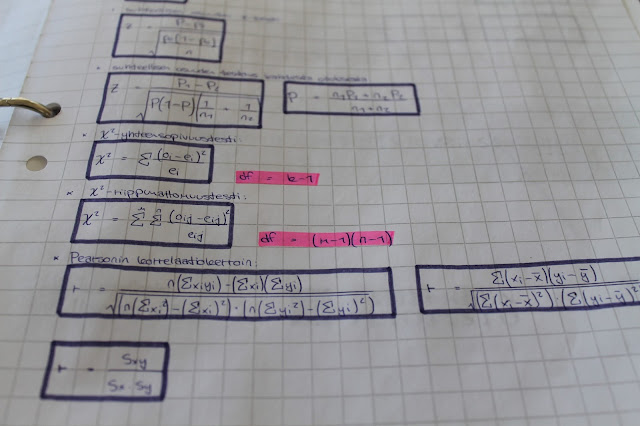 z = p - p₀ / √(p₀(1-p₀) / n)
• suhteellisen osuuden testaus kahdesta otoksesta
z = P₁ - P₂ / √(P(1-P)(1/n₁ + 1/n₂)) P = n₁P₁ + n₂P₂ / n₁ + n₂
• χ²-yhteensopivuustesti:
χ² = Σ (oᵢ - eᵢ)² / eᵢ df = k-1
• χ²-riippumattomuustesti:
χ² = Σ Σ (oᵢⱼ - eᵢⱼ)² / eᵢⱼ df = (m-1)(n-1)
• Pearsonin korrelaatiokerroin:
r = n(Σxᵢyᵢ) - (Σxᵢ)(Σyᵢ) / √((n(Σxᵢ²) - (Σxᵢ)²) · (n(Σyᵢ²) - (Σyᵢ)²)) r = Σ(xᵢ - x̄)(yᵢ - ȳ) / √(Σ(xᵢ - x̄)² · (Σ(yᵢ - ȳ)²
r = Sxy / Sx · Sy